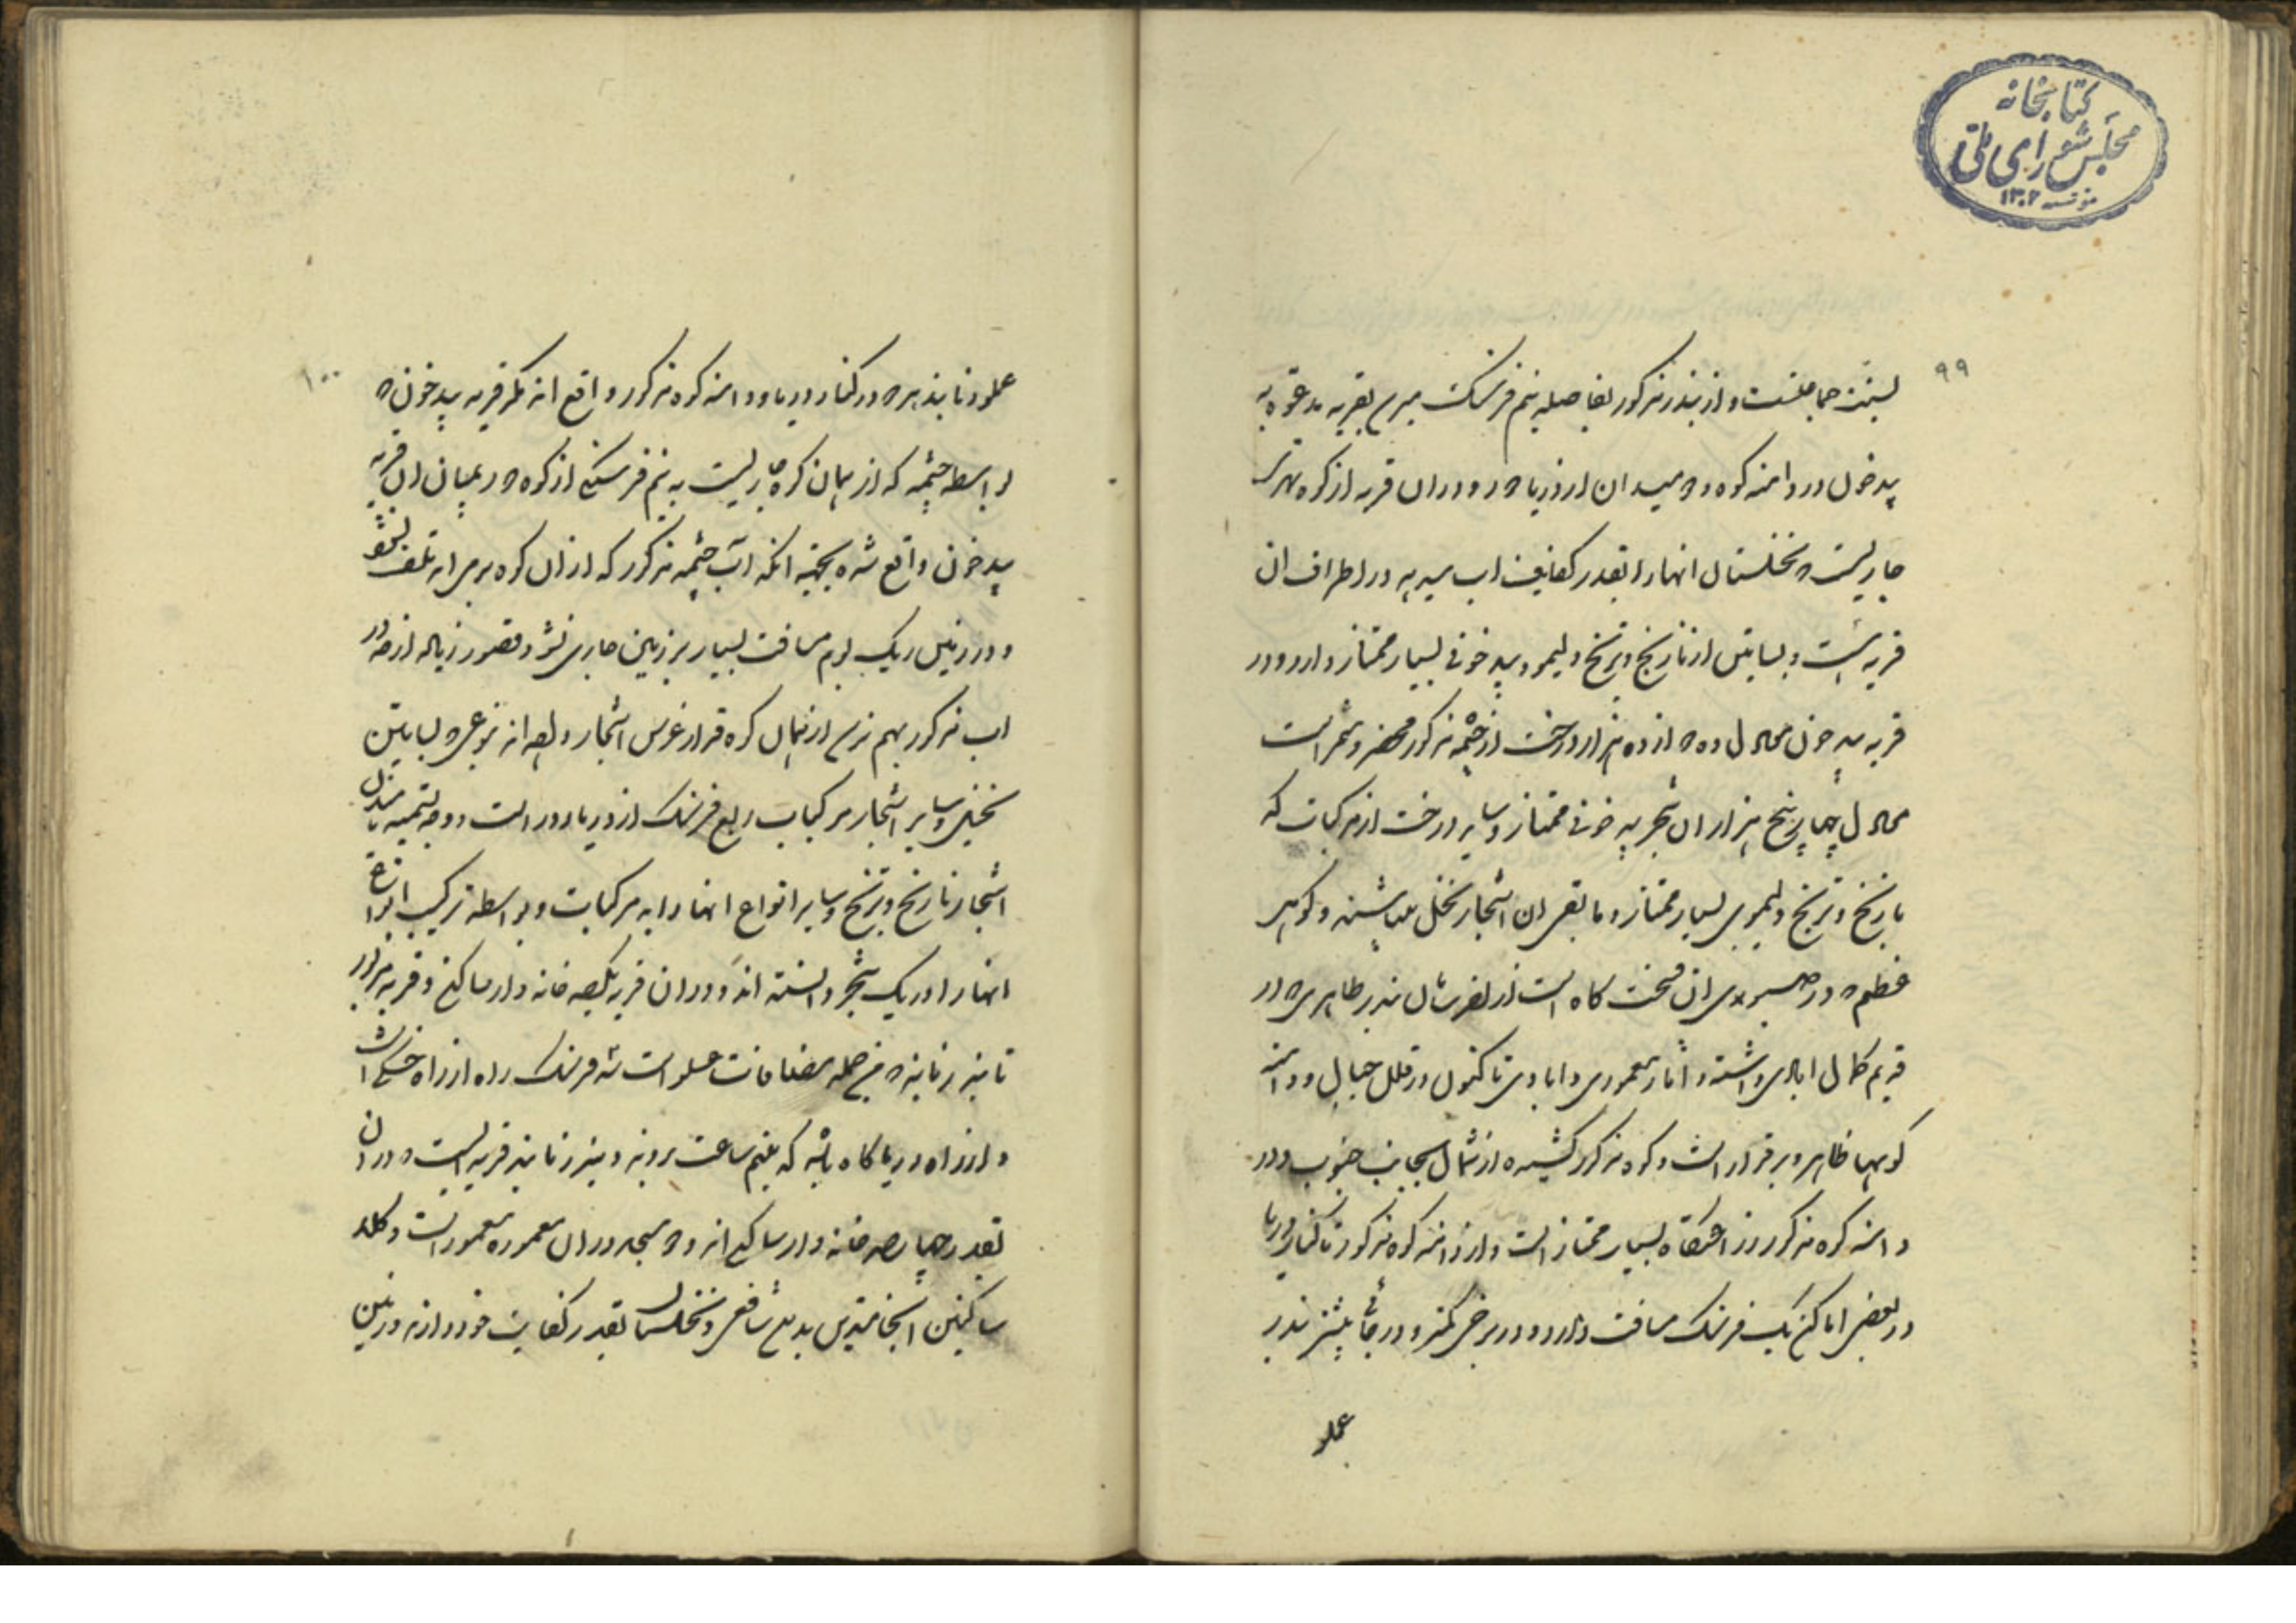 کتابخانه
مجلس شورای ملی
مؤسسه ۱۳۰۲
۹۹
و از بندر مذکور بفاصله نیم فرسنک میرسی بقریه مدعوه به
پیدخون در دامنه کوه و میدان از دریا دور و دران قریه از کوه نهری
جاریست و نخلستان انها را بقدر کفایت اب میدهد در اطراف ان
قریه است و بساتین از نارنج و ترنج و لیمو و پیدخونی بسیار ممتاز دارد و در
قریه پیدخون محاذی ده دوازده هزار درخت از چشمه مذکور مخضر و مثمر است
معادل چهار پنج هزار ان شجر پیدخونی ممتاز و سایر درخت از مرکبات که
نارنج و ترنج و لیموی بسیار ممتاز و مابقی ان اشجار نخل میباشند و کوهی
عظیم در ان تختکاه است از بندر طاهری در
قدیم کمال ابادی داشته و اثار معموری و ابادی تاکنون در قلل جبال و دامنه
کوهها ظاهر و برقرار است و کوه مذکور کشیده از شمال بجانب جنوب و در
دامنه کوه مذکور بسیار ممتاز است و از دامنه کوه مذکور تا کنار دریا
در بعضی اماکن یک فرسنک مسافت دارد و در برخی کمتر و در جائی بیشتر بندر
عسلو
۱۰۰
عسلو و نابند در کنار دریا و دامنه کوه مذکور واقع اند مکر قریه پیدخون
بواسطه چشمه که از همان کوه جاریست به نیم فرسنکی از کوه در میان ان قریه
پیدخون واقع شده بجهة انکه آب چشمه مذکور که از ان کوه برمی اید تلف نشود
و در زمین ریک بوم مسافت بسیار بر زمین جاری نشود و قصور زیاد از
اب مذکور بهم نرسد از همان کوه قرار غرس اشجار داده اند نوعی بساتین
نخیل و سایر اشجار مرکبات ربع فرسنک از دریا دور است و وجه تسمیه
اشجار نارنج و ترنج و سایر انواع انها را به مرکبات و بواسطه ترکیب انواع
انها را در یک شجر دانسته اند و دران قریه یکصد خانه وار ساکن و قریه مزبور
تا بندر نابند من جمله مضافات عسلو است سه فرسنک راه از راه خشکی است
و از راه دریا کاه باشد که بنیم ساعت بروند و بندر نابند قریه ایست و دران
بقدر چهار صد خانه وار ساکن اند و مسجد دران معموره معمور است و کلا
ساکنین انجا متدین بدین شافعی و نخلستان بقدر کفایت خود دارند و زمین